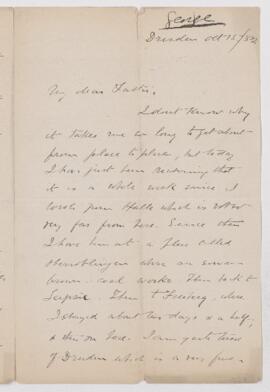 George
Dresden Oct 15/82
My dear Father,
I don't know why
it takes me so long to get about
from place to place, but today
I have just been reckoning that
it is a whole week since I
wrote from Halle which is not so
very far from here. Since then
I have been at a place called
where an
brown-coal works. Then back to
Leipsic. Then to Freiberg, where
I stayed about two days & a half,
& then on here. I am quite
of Dresden which is a very fine